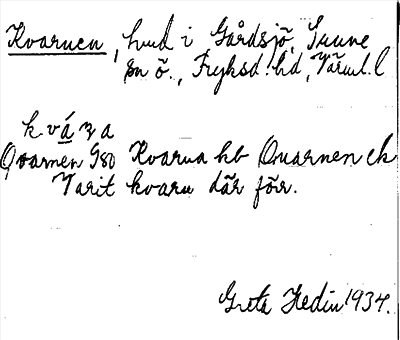 Kvarnen, hmd i Gårdsjö, Sunne
sn ö., Fryksd. hd, Värml. l
kváṇa
Qvarnen Gsö Kvarna hb Quarnen ek
Varit kvarn där förr.
Greta Hedin 1934.